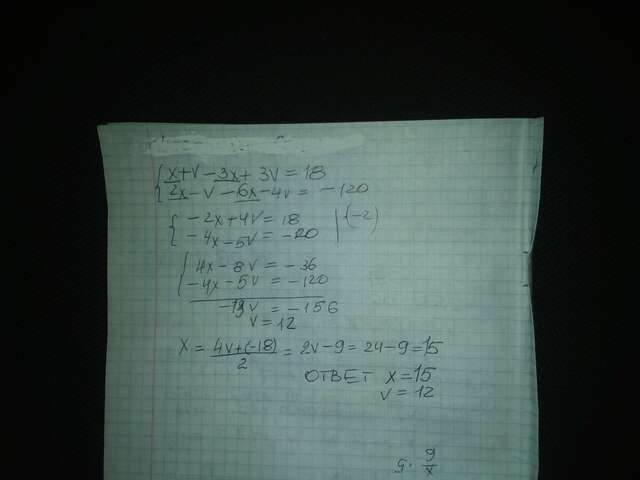 x+v-3x+3v=18
2x-v-6x-4v=-120
-2x+4v=18 |(-2)
-4x-5v=-120
4x-8v=-36
-4x-5v=-120
-13v=-156
v=12
x=4v+(-18)/2=2v-9=24-9=15
ОТВЕТ x=15
v=12
9/x